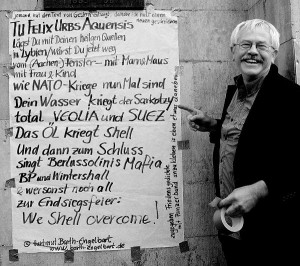 Tu Felix Urbs Aquensis
lägst Du mit Deinen heißen Quellen
in Lybien, wärst Du jetzt weg
vom (Aachen) Fenster - mit Mann & Maus
mit Frau & Kind
wie NATO-Kriege nun Mal sind
Dein Wasser kriegt der Sarkotzy
total, VEOLIA und SUEZ
Das ÖL kriegt Shell
Und dann zum Schluss
singt Berlussolinis Mafia
BP und Wintershall
& wer sonst noch all
zur Endsiegsfeier:
We Shell overcome!
© Hartmut Barth-Engelbart
www.barth-engelbart.de